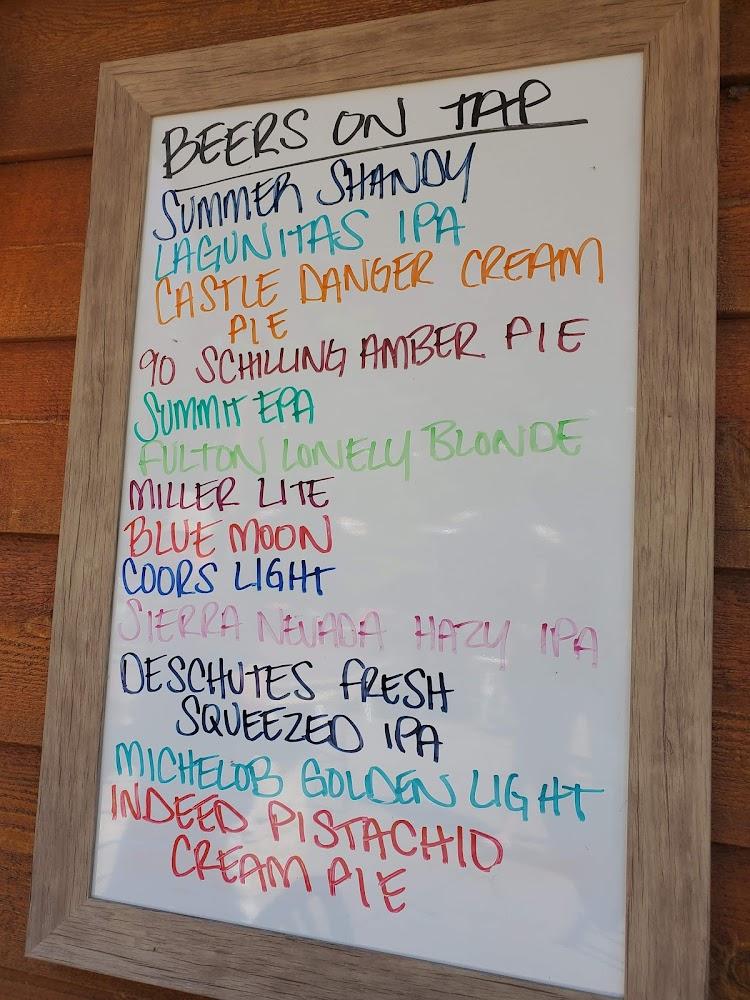 BEERS ON TAP
SUMMER SHANDY
LAGUNITAS IPA
CASTLE DANGER CREAM
PIE
90 SCHILLING AMBER PIE
SUMMIT EPA
FULTON LONELY BLONDE
MILLER LITE
BLUE MOON
COORS LIGHT
SIERRA NEVADA HAZY IPA
DESCHUTES FRESH
SQUEEZED IPA
MICHELOB GOLDEN LIGHT
INDEED PISTACHIO
CREAM PIE